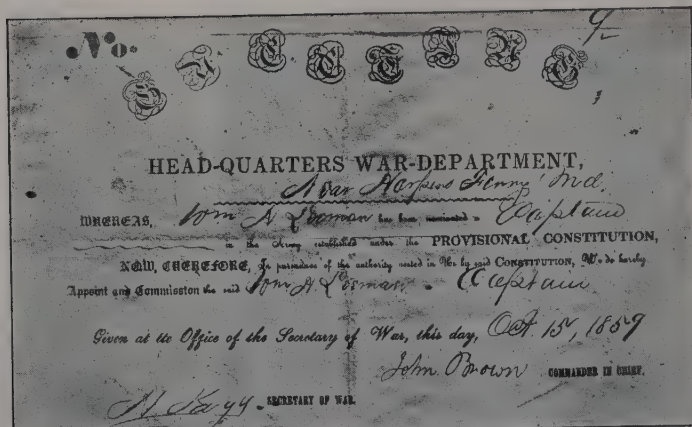 No. 9
GREETING
HEAD-QUARTERS WAR-DEPARTMENT,
Near Harpers Ferry Md.
WHEREAS, Wm H Leeman has been nominated a Captain
in the Army established under the PROVISIONAL CONSTITUTION,
NOW, THEREFORE, In pursuance of the authority vested in Us by said CONSTITUTION, We do hereby
Appoint and Commission the said Wm H Leeman a Captain
Given at the Office of the Secretary of War, this day, Oct. 15, 1859
John Brown COMMANDER IN CHIEF.
H. Kagi SECRETARY OF WAR.